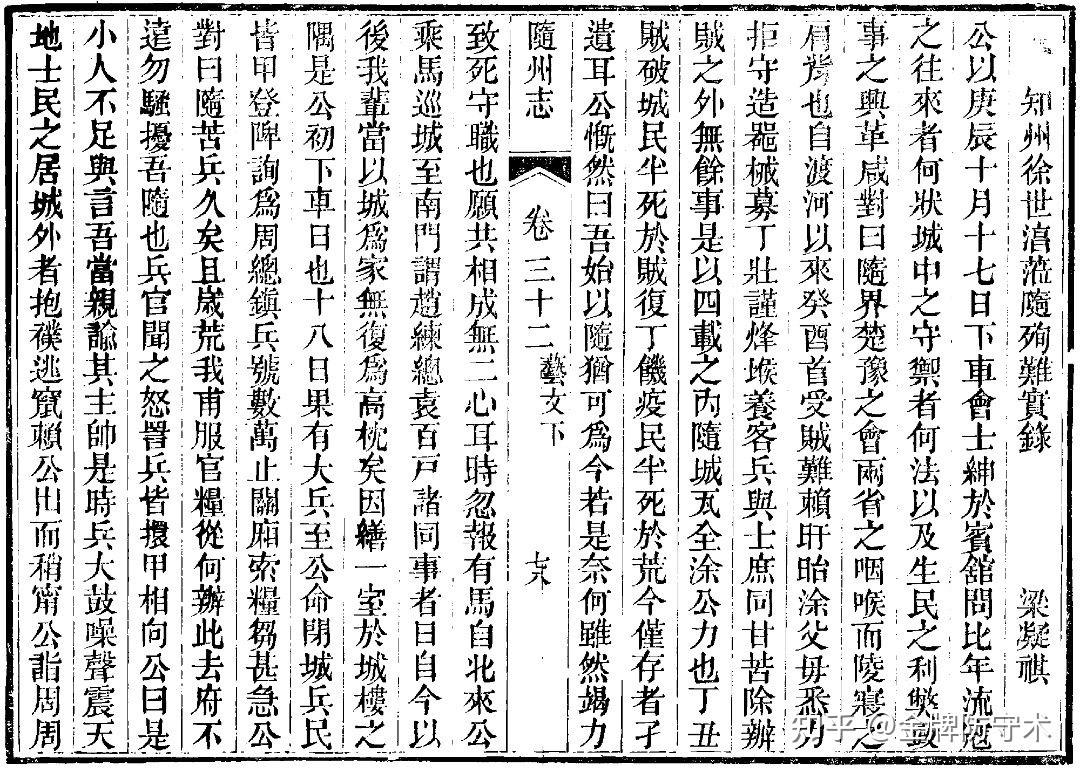 知州徐世淳蒞隨殉難實錄 梁凝祺
公以庚辰十月十七日下車會士紳於賓舘問比年流冦
之往來者何狀城中之守禦者何法以及生民之利獘政
事之興革咸對曰隨界楚豫之會兩省之咽喉而陵寢之
肩背也自渡河以來癸酉首受賊難賴盱眙涂父母悉力
拒守造噐械募丁壯謹烽堠養客兵與士庶同甘苦除辦
賊之外無餘事是以四載之內隨城瓦全涂公力也丁丑
賊破城民半死於賊復丁饑疫民半死於荒今僅存者孑
遺耳公慨然曰吾始以隨猶可爲今若是奈何雖然竭力
隨州志
卷三十二
藝文下
致死守職也願共相成無二心耳時忽報有馬自北來公
乘馬巡城至南門謂趙練總袁百戸諸同事者曰自今以
後我輩當以城爲家無復爲高枕矣因繕一室於城樓之
隅是公初下車日也十八日果有大兵至公命閉城兵民
皆甲登陴詢爲周總鎮兵號數萬止關廂索糧芻甚急公
對曰隨苦兵久矣且歲荒我甫服官糧從何辦此去府不
遠勿騷擾吾隨也兵官聞之怒詈兵皆擐甲相向公曰是
小人不足與言吾當親諭其主帥是時兵大鼓噪聲震天
地士民之居城外者抱襆逃竄賴公出而稍甯公詣周周
知乎 @金牌防守术